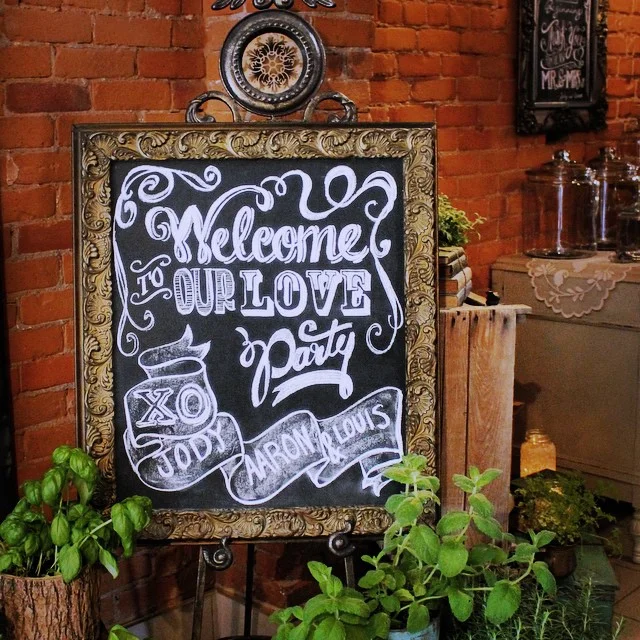 Welcome
TO OUR LOVE
Party
XO
JODY AARON & LOUIS
MR & MRS